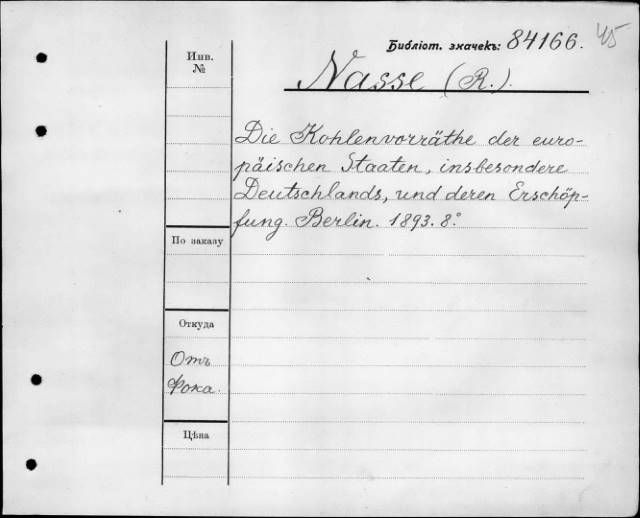 Библіот. значекъ: 84166. 45
Инв.
№
Nasse (R.).
Die Kohlenvorräthe der euro-
päischen Staaten, insbesondere
Deutschlands, und deren Erschöp-
fung. Berlin. 1893. 8°.
По заказу
Откуда
Отъ
Фока.
Цѣна